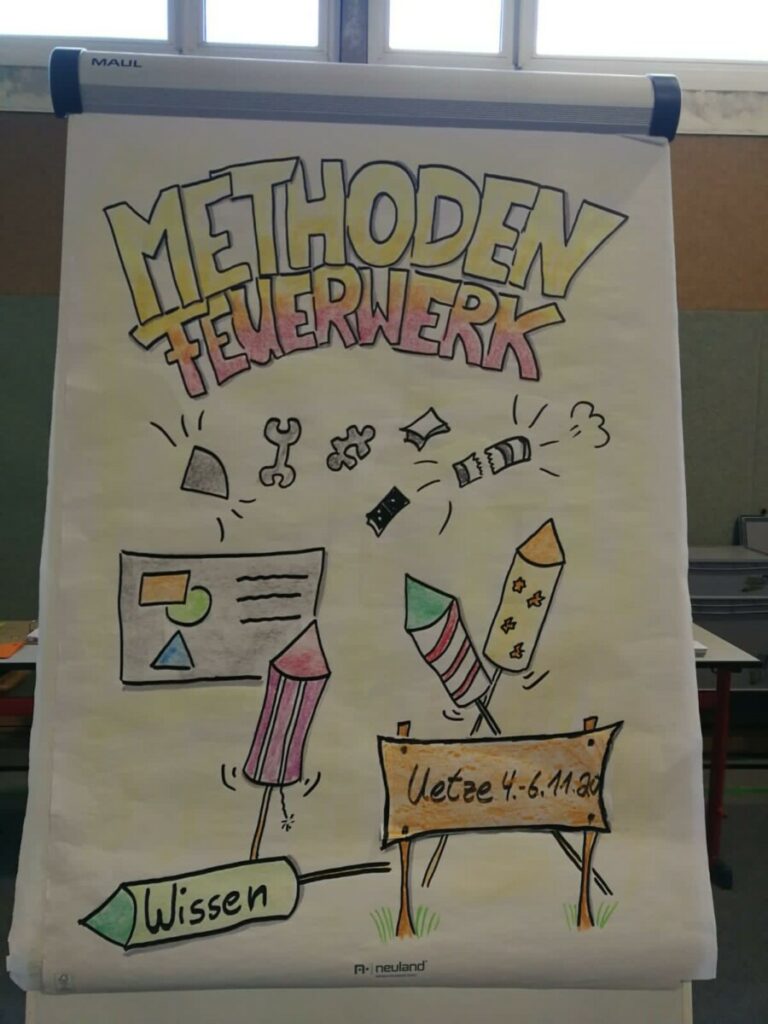 MAUL
METHODEN
FEUERWERK
Uetze 4.-6.11.20
Wissen
neuland